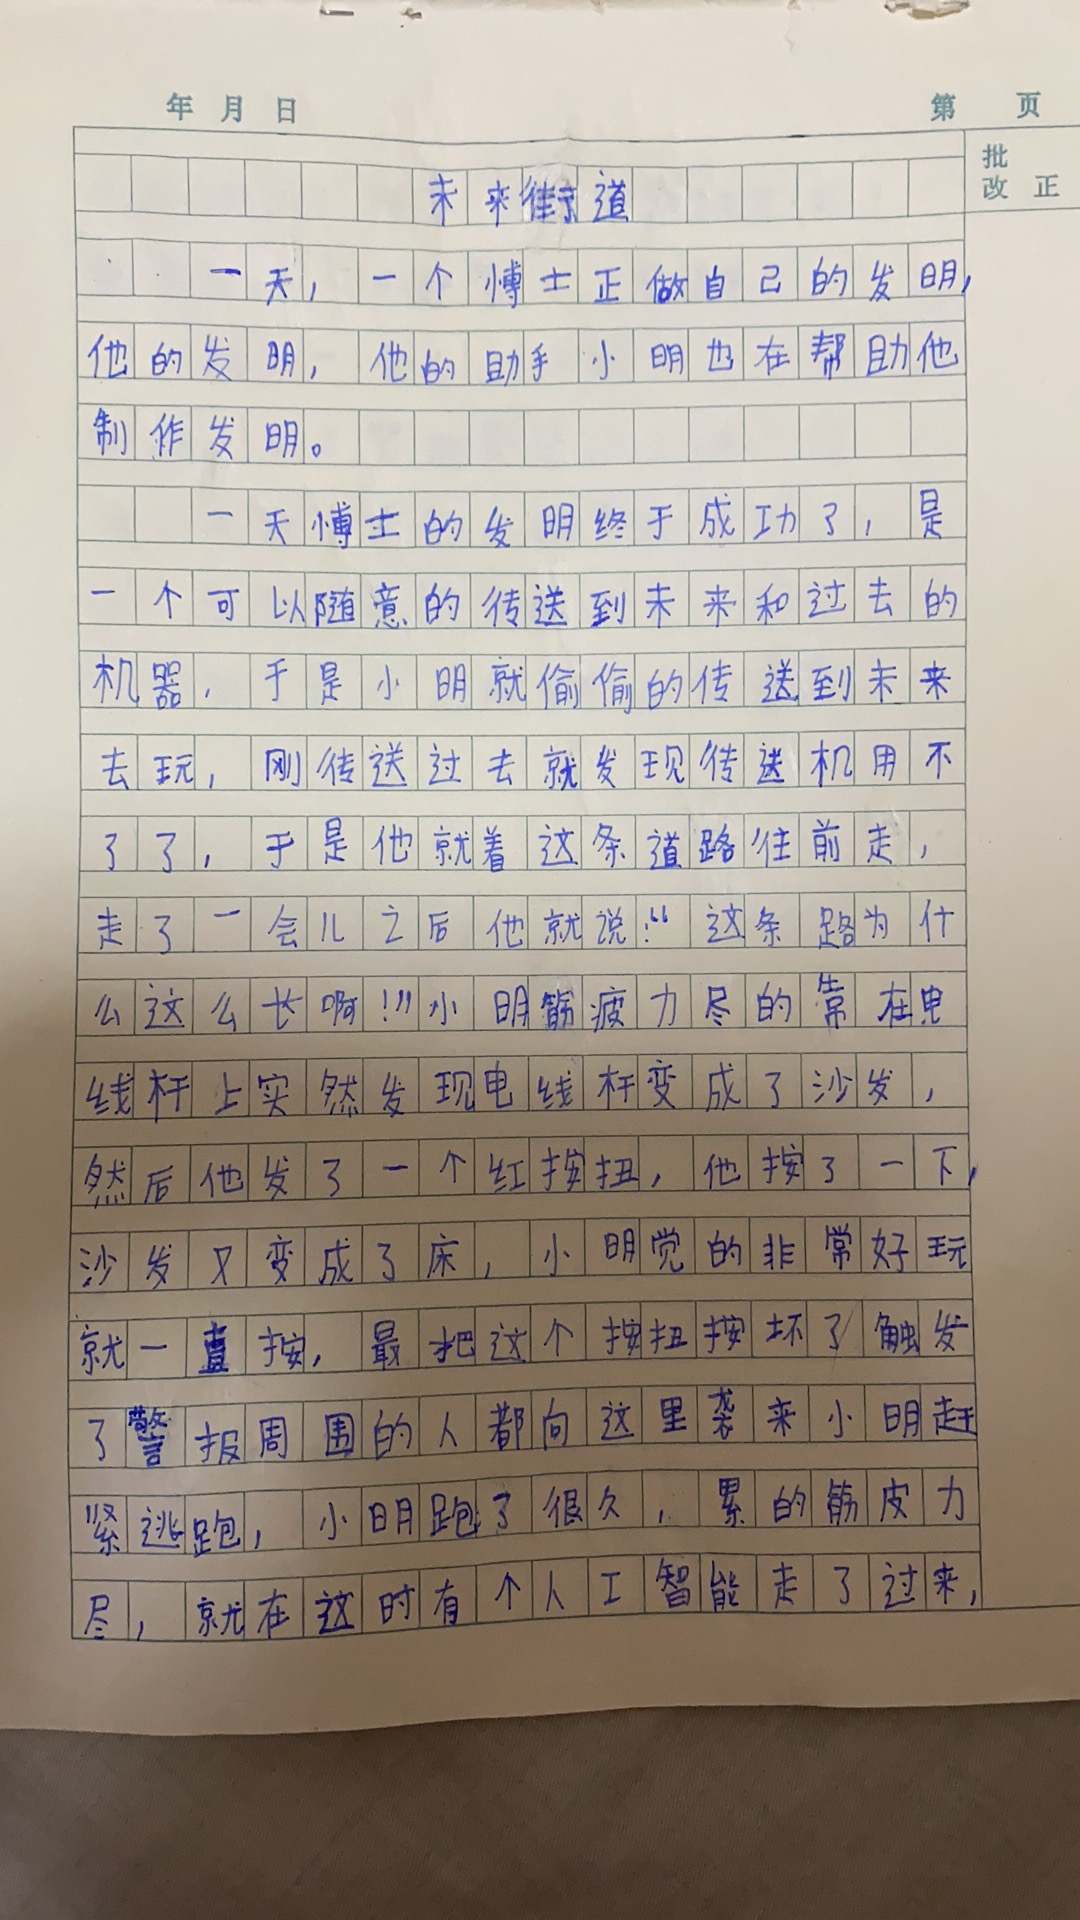 年 月 日 第 页
批
改 正
未来街道
一天，一个博士正做自己的发明，
他的发明，他的助手小明也在帮助他
制作发明。
一天博士的发明终于成功了，是
一个可以随意的传送到未来和过去的
机器，于是小明就偷偷的传送到未来
去玩，刚传送过去就发现传送机用不
了了，于是他就着这条道路往前走，
走了一会儿之后他就说：“这条路为什
么这么长啊！”小明筋疲力尽的靠在电
线杆上突然发现电线杆变成了沙发，
然后他发了一个红按扭，他按了一下，
沙发又变成了床，小明觉的非常好玩
就一直按，最把这个按扭按坏了触发
了警报周围的人都向这里袭来小明赶
紧逃跑，小明跑了很久，累的筋皮力
尽，就在这时有个人工智能走了过来，